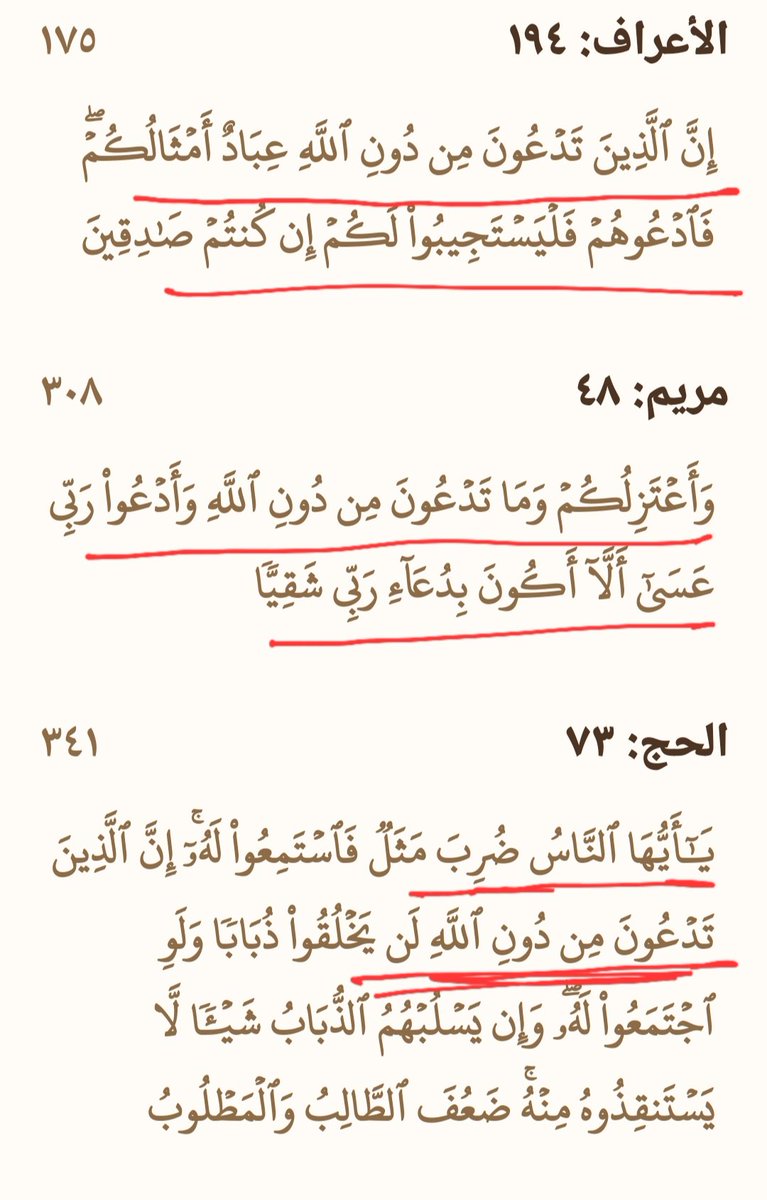 الأعراف: ١٩٤ ١٧٥
إِنَّ ٱلَّذِينَ تَدۡعُونَ مِن دُونِ ٱللَّهِ عِبَادٌ أَمۡثَالُكُمۡۖ
فَٱدۡعُوهُمۡ فَلۡيَسۡتَجِيبُواْ لَكُمۡ إِن كُنتُمۡ صَٰدِقِينَ
مريم: ٤٨ ٣٠٨
وَأَعۡتَزِلُكُمۡ وَمَا تَدۡعُونَ مِن دُونِ ٱللَّهِ وَأَدۡعُواْ رَبِّي
عَسَىٰٓ أَلَّآ أَكُونَ بِدُعَآءِ رَبِّي شَقِيّٗا
الحج: ٧٣ ٣٤١
يَٰٓأَيُّهَا ٱلنَّاسُ ضُرِبَ مَثَلٞ فَٱسۡتَمِعُواْ لَهُۥٓۚ إِنَّ ٱلَّذِينَ
تَدۡعُونَ مِن دُونِ ٱللَّهِ لَن يَخۡلُقُواْ ذُبَابٗا وَلَوِ
ٱجۡتَمَعُواْ لَهُۥۖ وَإِن يَسۡلُبۡهُمُ ٱلذُّبَابُ شَيۡـٔٗا لَّا
يَسۡتَنقِذُوهُ مِنۡهُۚ ضَعُفَ ٱلطَّالِبُ وَٱلۡمَطۡلُوبُ